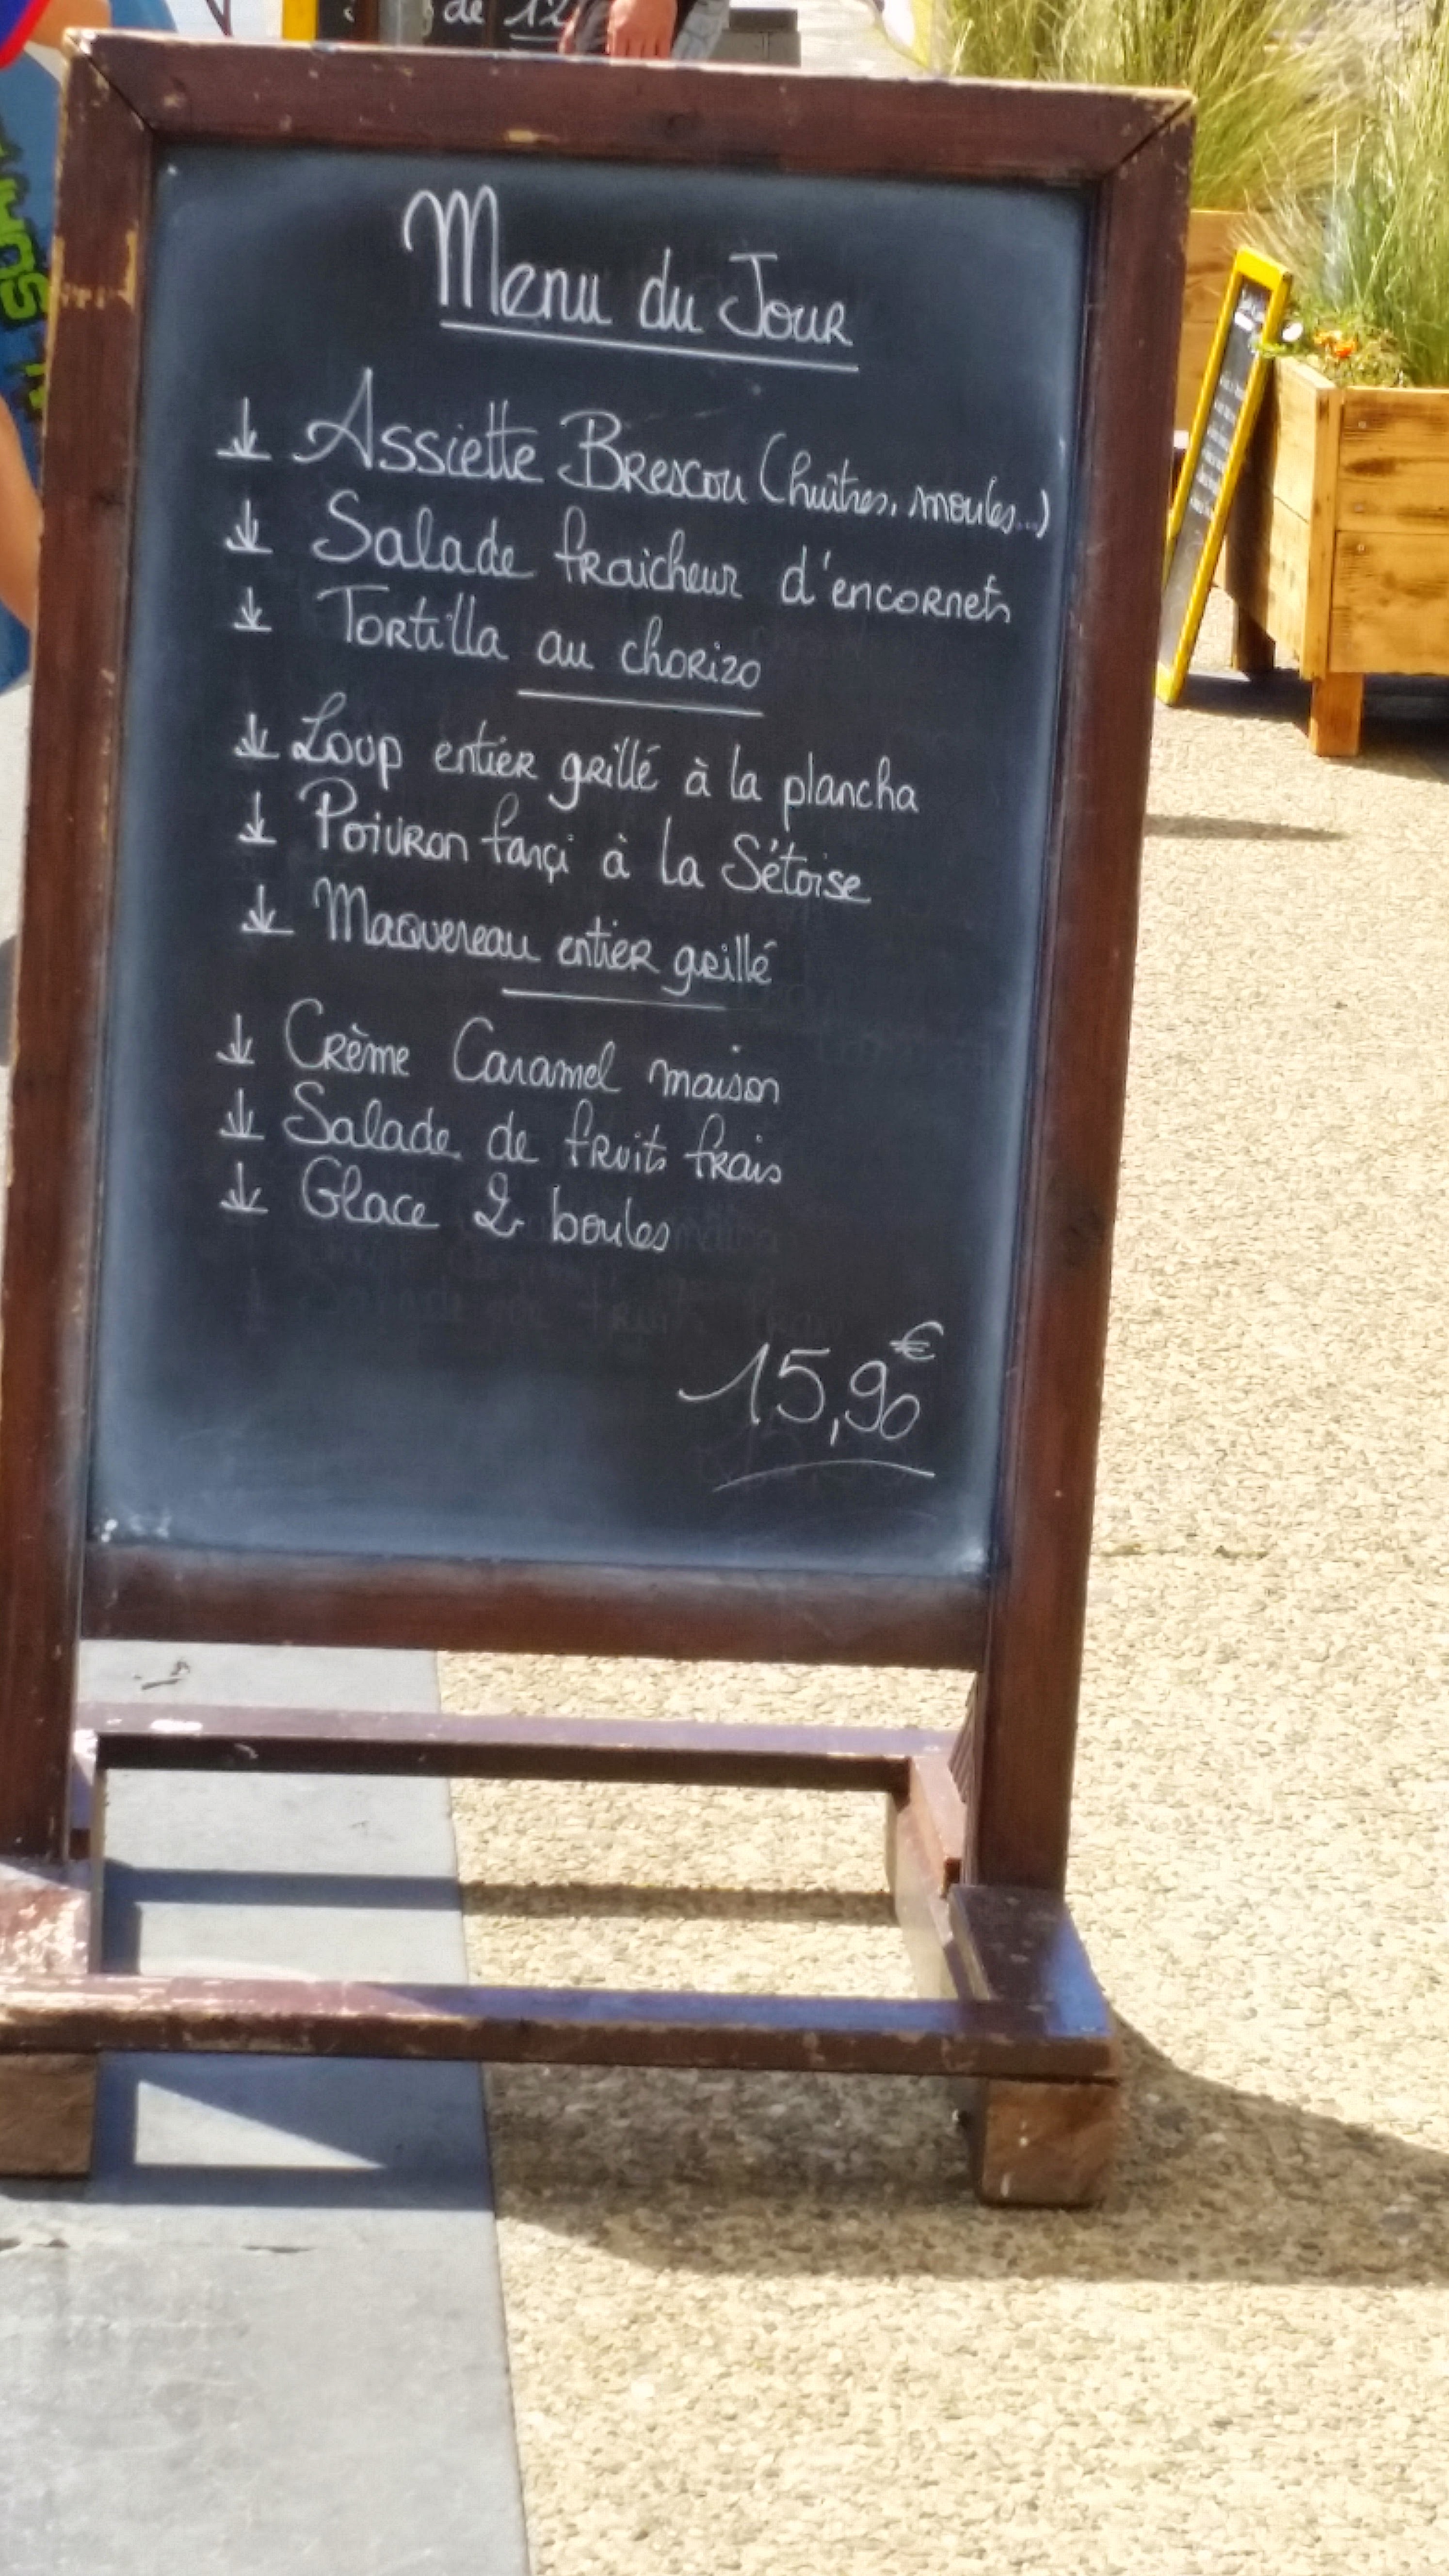 de 12
Menu du Jour
Assiette Brescou (huîtres, moules...)
Salade fraicheur d'encornets
Tortilla au chorizo
Loup entier grillé à la plancha
Poivron farçi à la Sétoise
Maquereau entier grillé
Crème Caramel maison
Salade de fruits frais
Glace 2 boules
15,90€